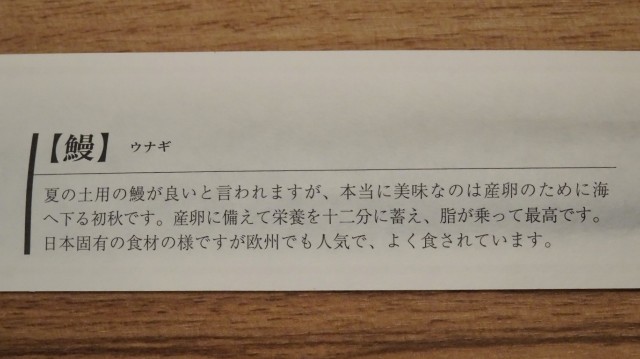 【鰻】 ウナギ
夏の土用の鰻が良いと言われますが、本当に美味なのは産卵のために海
へ下る初秋です。産卵に備えて栄養を十二分に蓄え、脂が乗って最高です。
日本固有の食材の様ですが欧州でも人気で、よく食されています。